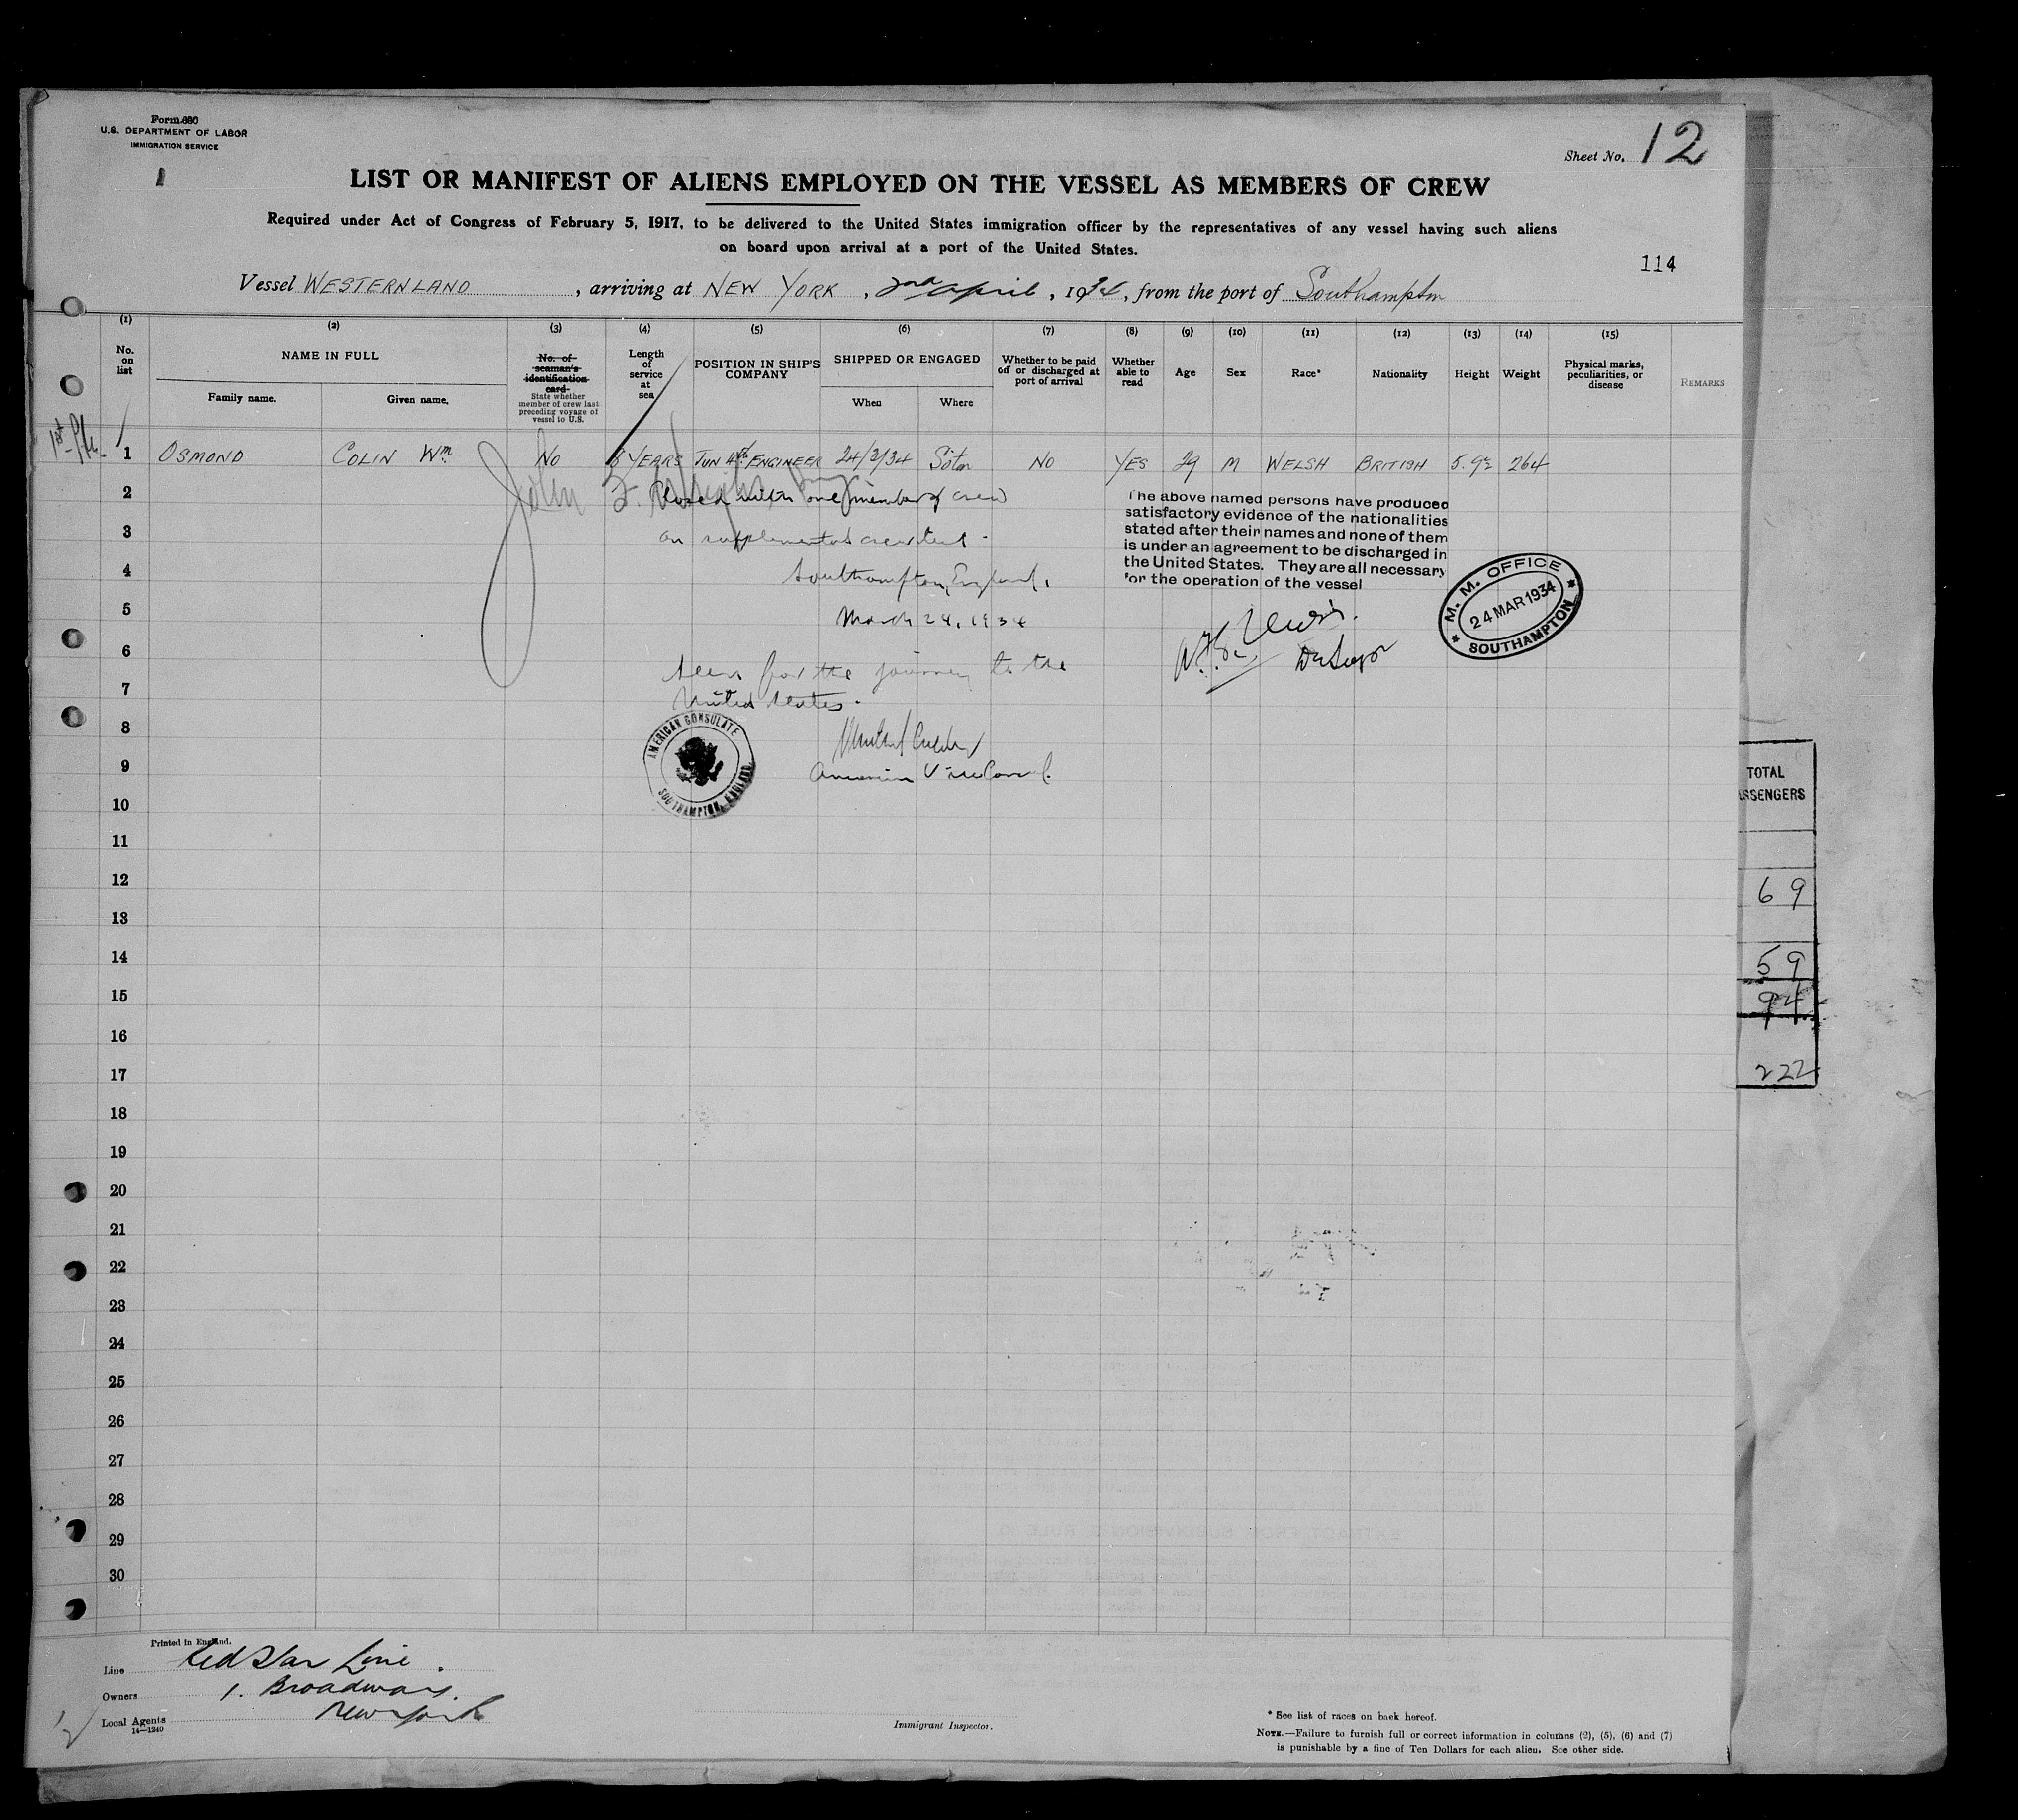 Form 680
U.S. DEPARTMENT OF LABOR
IMMIGRATION SERVICE
1
Sheet No. 12
LIST OR MANIFEST OF ALIENS EMPLOYED ON THE VESSEL AS MEMBERS OF CREW
Required under Act of Congress of February 5, 1917, to be delivered to the United States immigration officer by the representatives of any vessel having such aliens
on board upon arrival at a port of the United States.
114
Vessel WESTERNLAND, arriving at NEW YORK, 2nd April, 1934, from the port of Southampton
(1) (2) (3) (4) (5) (6) (7) (8) (9) (10) (11) (12) (13) (14) (15)
No. on list
NAME IN FULL
Family name. Given name.
No. of seaman's identification card
State whether member of crew last preceding voyage of vessel to U.S.
Length of service at sea
POSITION IN SHIP'S COMPANY
SHIPPED OR ENGAGED
When Where
Whether to be paid off or discharged at port of arrival
Whether able to read
Age
Sex
Race*
Nationality
Height
Weight
Physical marks, peculiarities, or disease
REMARKS
1 OSMOND COLIN Wm NO YEARS JUN 4th ENGINEER 24/3/34 Soton NO YES 29 M WELSH BRITISH 5.9½ 264
2 Closed with one member of crew
John F.
3 on supplemental crew list
4 Southampton, England,
5 March 24, 1934
6 Seen for the journey to the
7 United States.
8
9 American Vice Consul.
10
11
12
13
14
15
16
17
18
19
20
21
22
23
24
25
26
27
28
29
30
The above named persons have produced
satisfactory evidence of the nationalities
stated after their names and none of them
is under an agreement to be discharged in
the United States. They are all necessary
for the operation of the vessel
M. M. OFFICE
24 MAR 1934
SOUTHAMPTON
AMERICAN CONSULATE
SOUTHAMPTON, ENGLAND.
TOTAL
SSENGERS
69
59
94
222
Printed in England.
Line Red Star Line.
Owners 1. Broadway.
Local Agents New York
14—1240
Immigrant Inspector.
* See list of races on back hereof.
NOTE.—Failure to furnish full or correct information in columns (2), (5), (6) and (7)
is punishable by a fine of Ten Dollars for each alien. See other side.